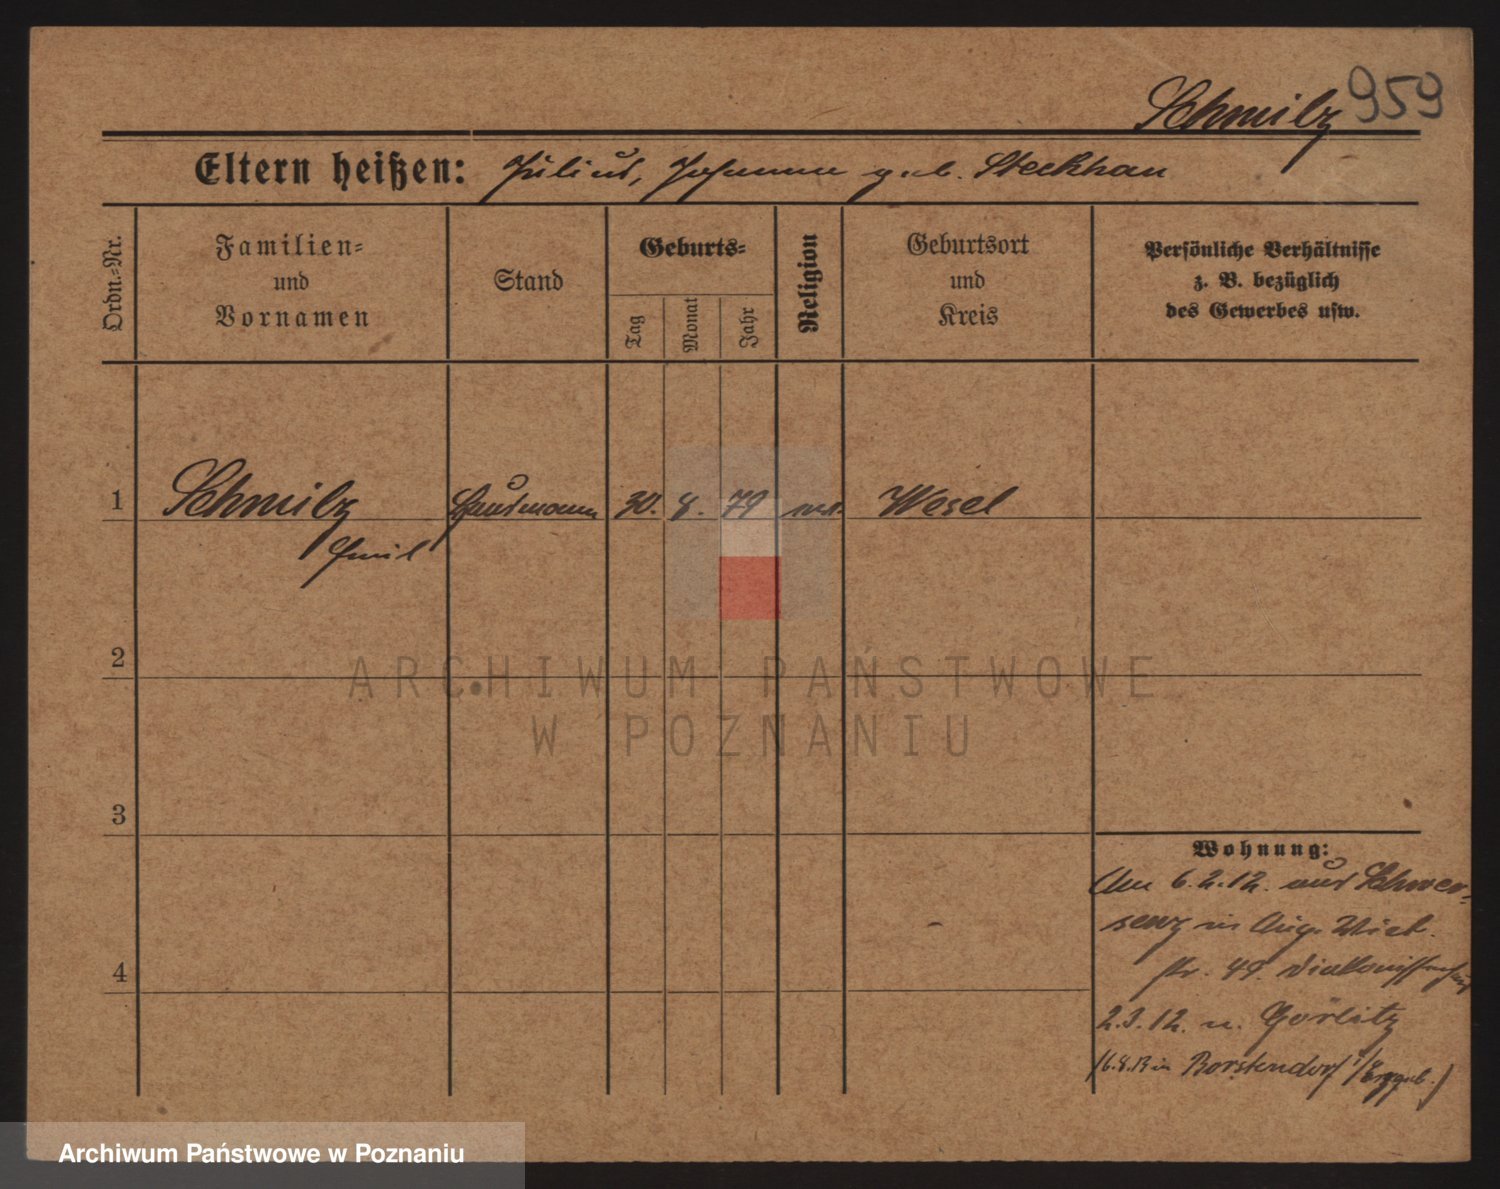 Schmilz 959
Eltern heißen: Julius, Johanna geb. Steckhan
Ordn.-Nr.
Familien-
und
Vornamen
Stand
Geburts-
Tag
Monat
Jahr
Religion
Geburtsort
und
Kreis
Persönliche Verhältnisse
z. B. bezüglich
des Gewerbes usw.
1 Schmilz Kaufmann 30. 8. 79 Wesel
Emil
2
ARCHIWUM PAŃSTWOWE
W POZNANIU
3
Wohnung:
Am 6.2.12. aus Schwer-
senz in Aug. Vict.
str. 49.
2.3.12. n. Görlitz
in Borstendorf i/Erzgeb.)
4
Archiwum Państwowe w Poznaniu